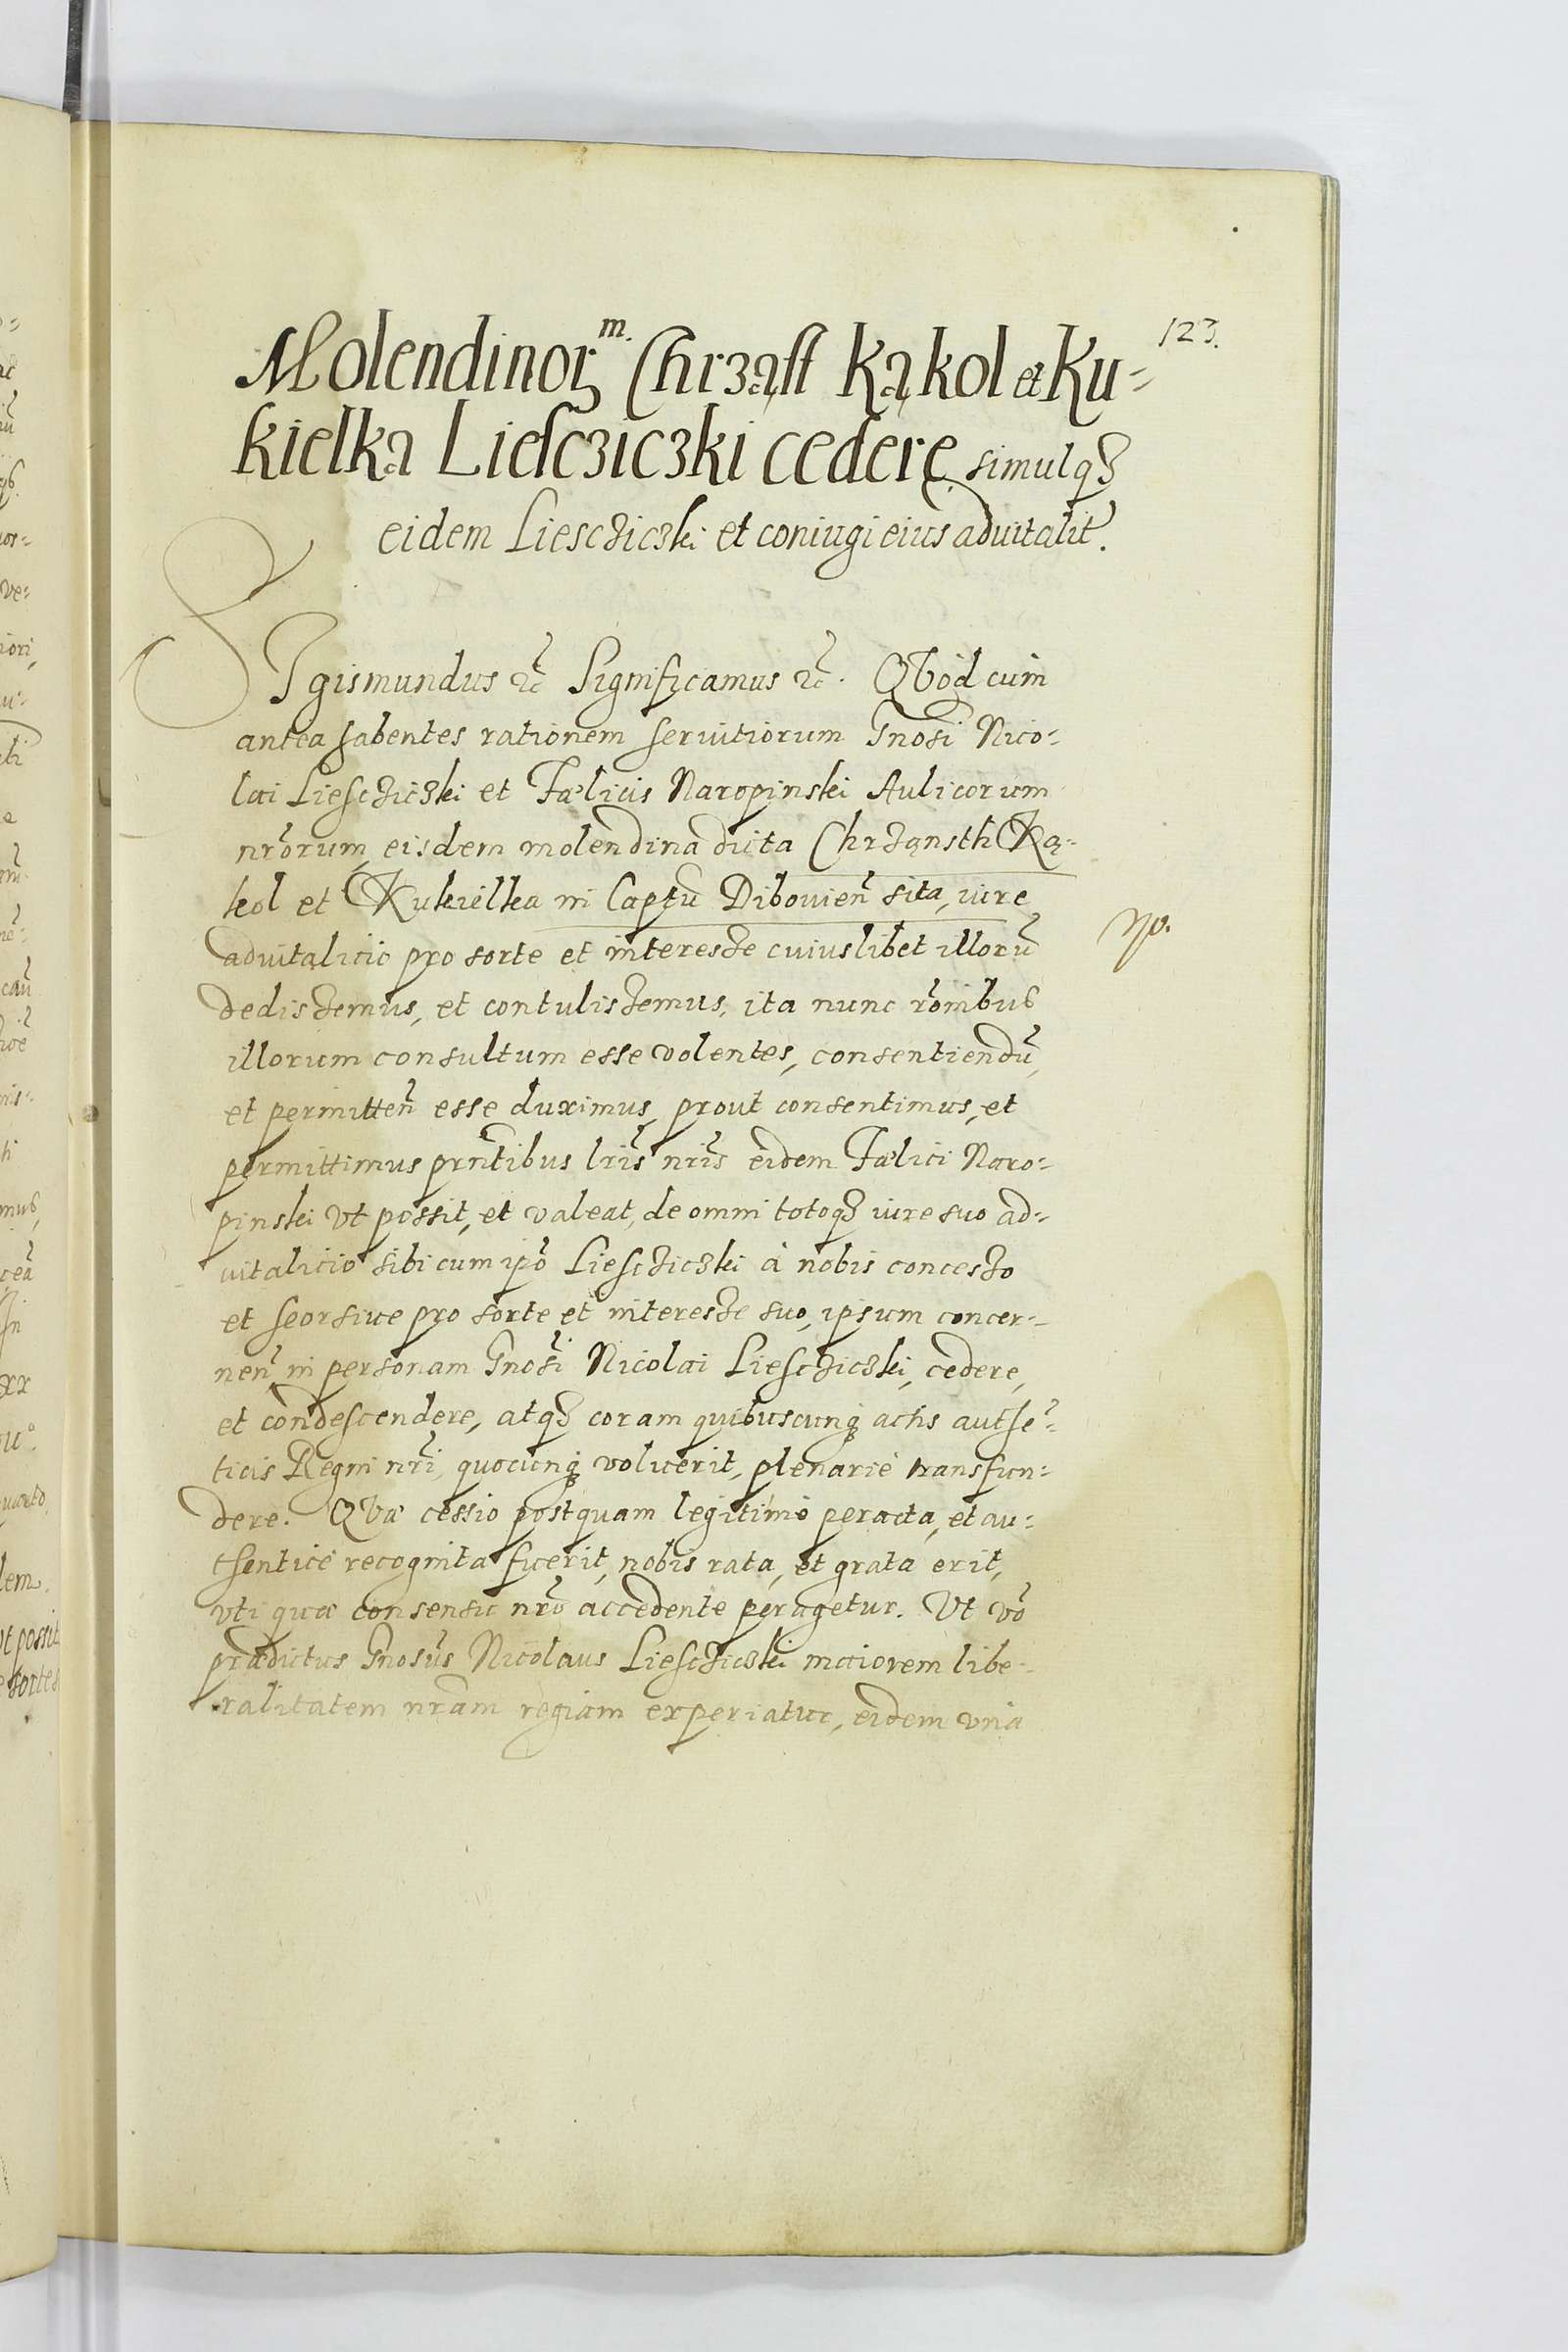 123.
Molendinoꝝ m. Chrząst Kąkol et Ku-
kielka Liescziczki cedere simulqȝ
eidem Liesczicski et coniugi eius aduitalit.
SIgismundus &c Significamus &c. QVod cum
antea habentes rationem seruitiorum Gnosi Nico-
lai Liesczicski et Fælicis Naropinski Aulicorum
nrorum, eisdem molendina dicta Chrząnsth Ką-
kol et Kukielka in Captu Diboвien sita, iure
aduitalitio pro sorte et interesse cuiuslibet illorū
dedissemus, et contulissemus, ita nunc ronibus
illorum consultum esse volentes, consentiendū,
et permitten esse duximus, prout consentimus, et
permittimus prntibus lris nris eidem Fælici Naro-
pinski vt possit, et valeat, de omni totoqȝ iure suo ad-
uitalitio sibi cum ipo Liesczicski à nobis concesso
et seorsiue pro sorte et interesse suo, ipsum concer-
nen in personam Gnosi Nicolai Liesczicski, cedere,
et condescendere, atqȝ coram quibuscunqȝ actis authe-
ticis Regni nri, quocunqȝ voluerit, plenariè transfun-
dere. QVæ cessio postquam legitimè peracta, et au-
thenticè recognita fuerit, nobis rata, et grata erit,
vti quæ consensu nro accedente peragetur. Vt vo
prædictus Gnosus Nicolaus Liesczicski maiorem libe-
ralitatem nram regiam experiatur, eidem vnà